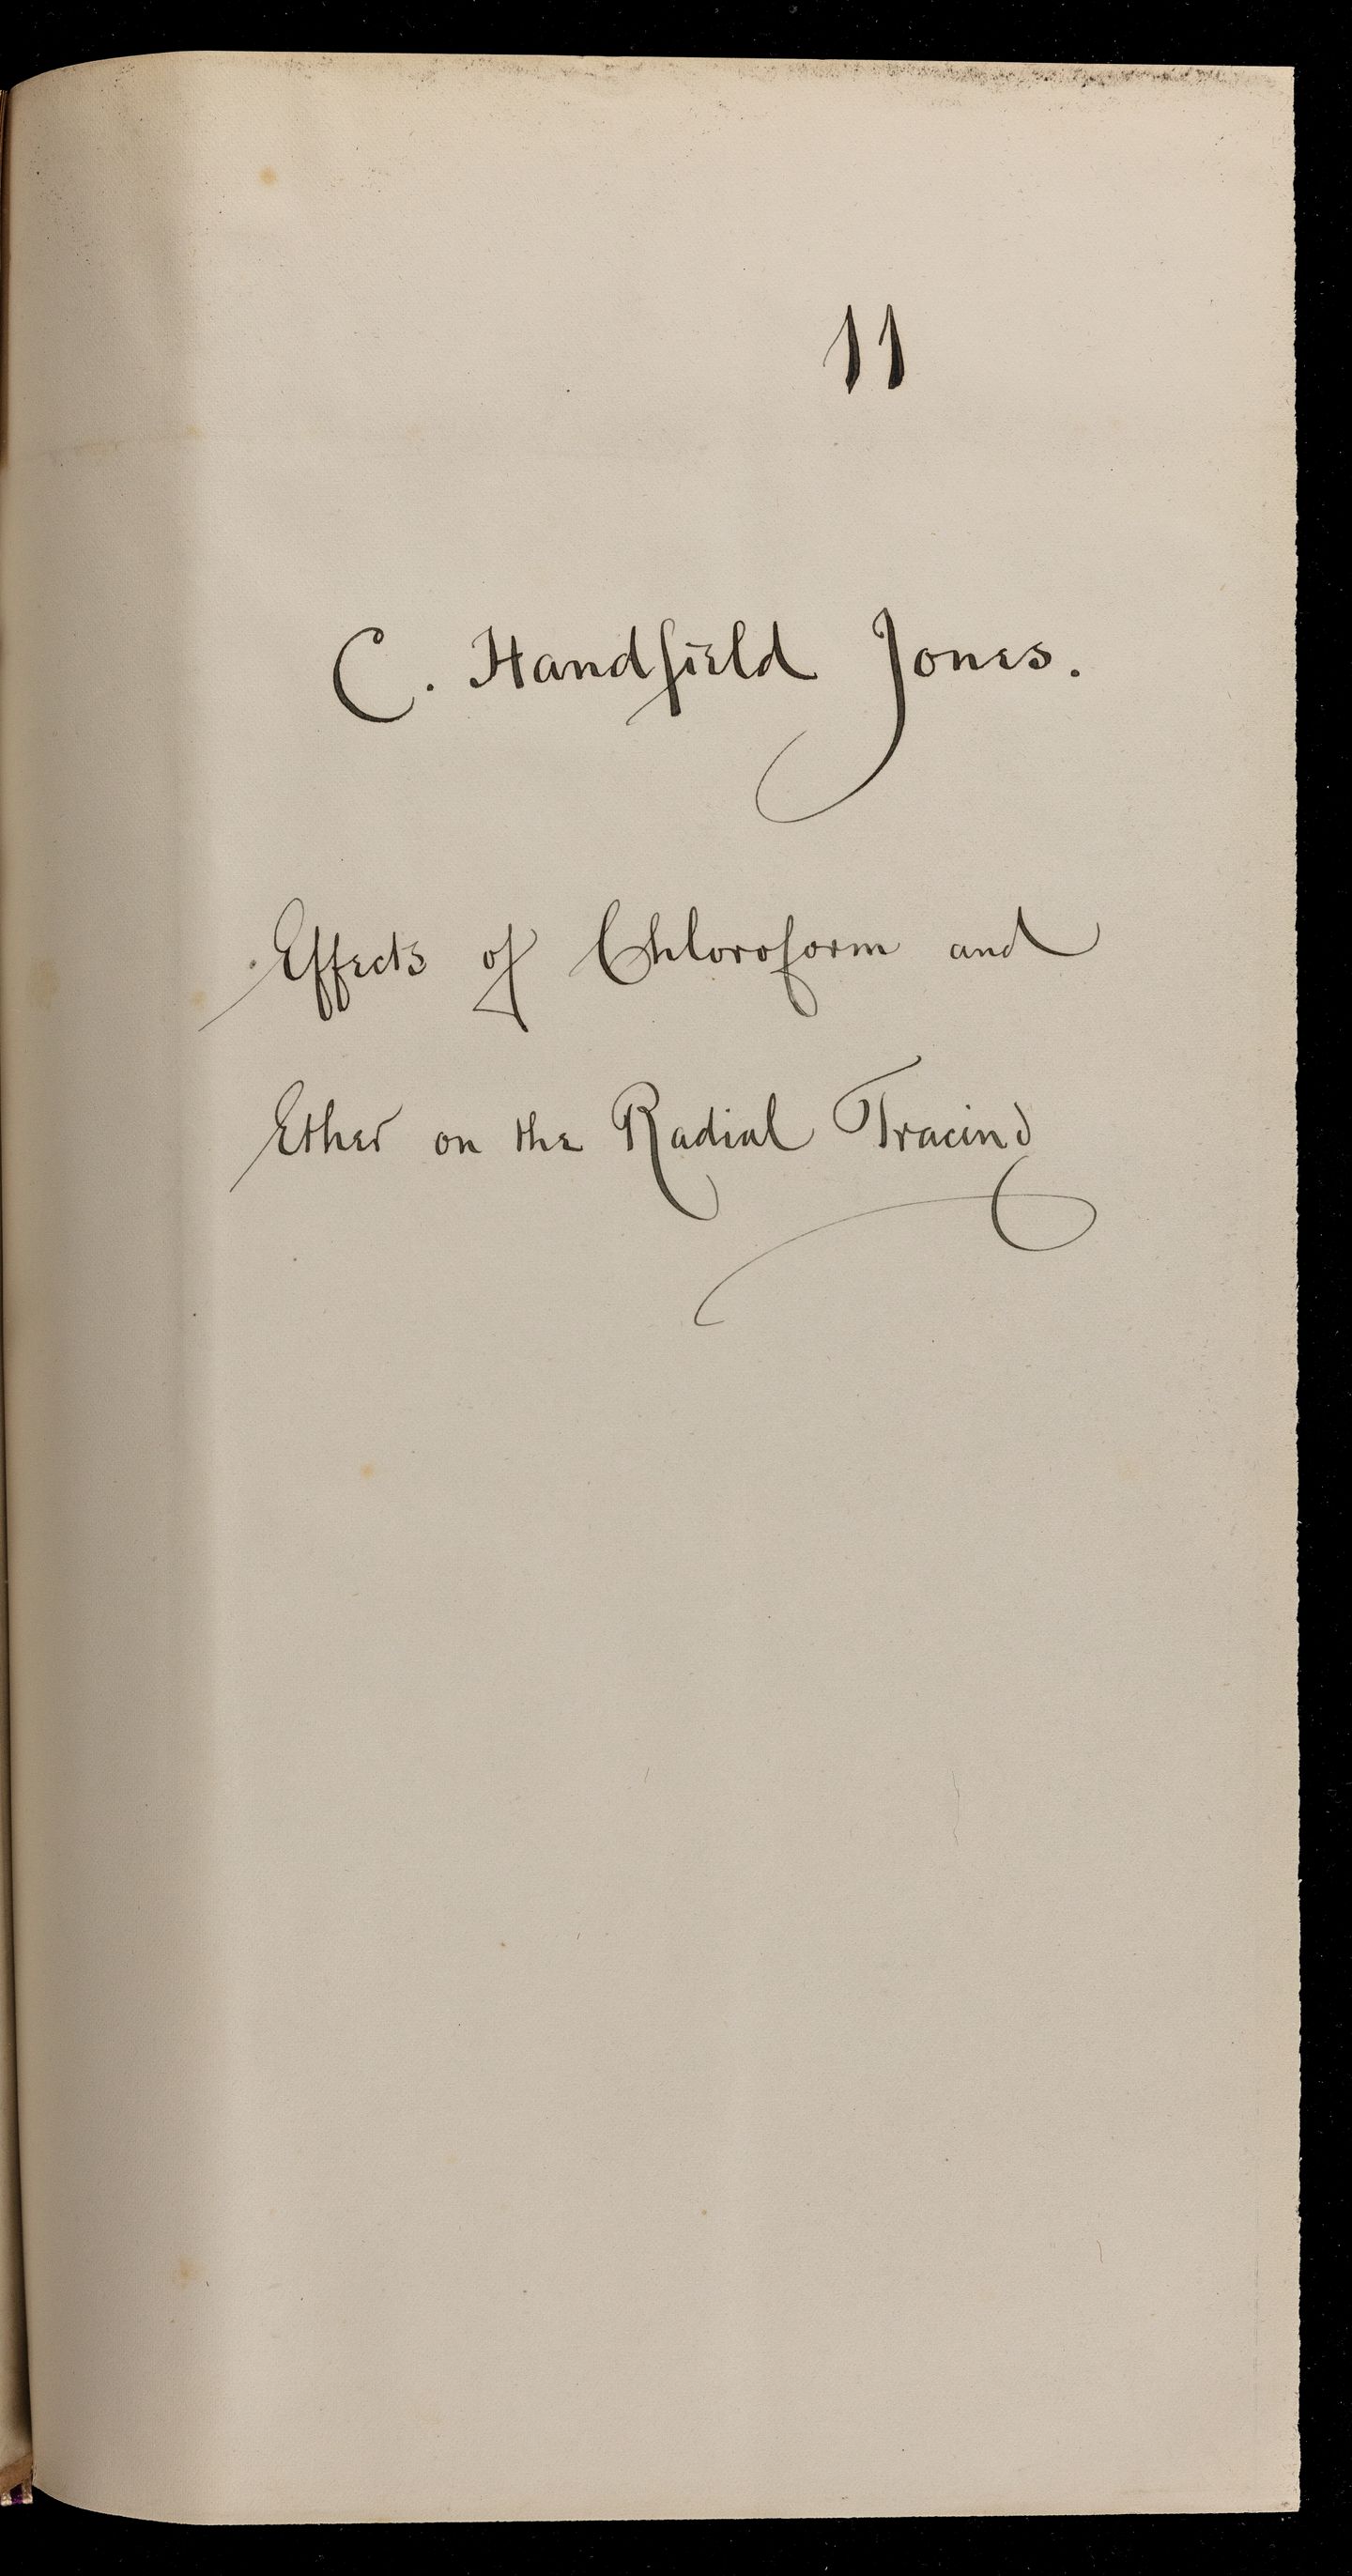 11
C. Handfield Jones.
Effects of Chloroform and
Ether on the Radial Tracing